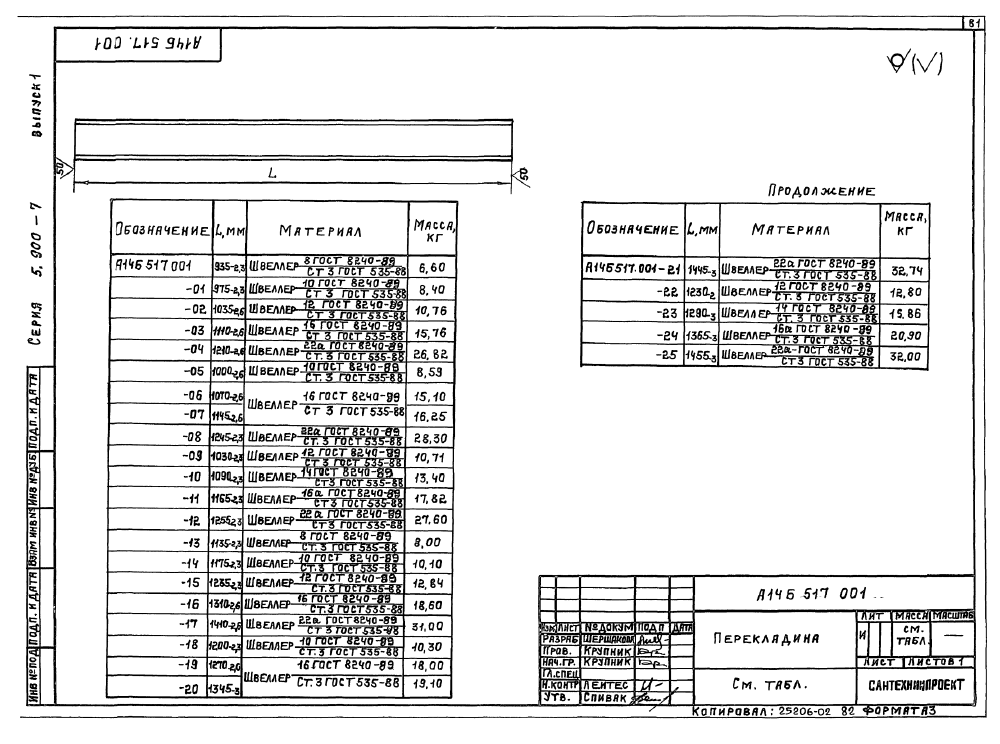 81
А14Б 517.001
Серия 5.900-7 Выпуск 1
50
L
50
Обозначение L, мм Материал Масса, кг
А14Б 517 001 935-2,3 Швеллер 8 ГОСТ 8240-89 / Ст 3 ГОСТ 535-88 6,60
-01 975-2,3 Швеллер 10 ГОСТ 8240-89 / Ст 3 ГОСТ 535-88 8,40
-02 1035-2,6 Швеллер 12 ГОСТ 8240-89 / Ст 3 ГОСТ 535-88 10,76
-03 1110-2,6 Швеллер 16 ГОСТ 8240-89 / Ст 3 ГОСТ 535-88 15,76
-04 1210-2,6 Швеллер 22а ГОСТ 8240-89 / Ст. 3 ГОСТ 535-88 26,82
-05 1000-2,6 Швеллер 10 ГОСТ 8240-89 / Ст. 3 ГОСТ 535-88 8,59
-06 1070-2,6 Швеллер 16 ГОСТ 8240-89 / Ст 3 ГОСТ 535-88 15,10
-07 1145-2,6 16,25
-08 1245-2,3 Швеллер 22а ГОСТ 8240-89 / Ст. 3 ГОСТ 535-88 28,30
-09 1030-2,3 Швеллер 12 ГОСТ 8240-89 / Ст 3 ГОСТ 535-88 10,71
-10 1090-2,3 Швеллер 14 ГОСТ 8240-89 / Ст 3 ГОСТ 535-88 13,40
-11 1165-2,3 Швеллер 16а ГОСТ 8240-89 / Ст 3 ГОСТ 535-88 17,82
-12 1255-2,3 Швеллер 22а ГОСТ 8240-89 / Ст 3 ГОСТ 535-88 27,60
-13 1135-2,3 Швеллер 8 ГОСТ 8240-89 / Ст. 3 ГОСТ 535-88 8,00
-14 1175-2,3 Швеллер 10 ГОСТ 8240-89 / Ст. 3 ГОСТ 535-88 10,10
-15 1235-2,3 Швеллер 12 ГОСТ 8240-89 / Ст 3 ГОСТ 535-88 12,84
-16 1310-2,6 Швеллер 16 ГОСТ 8240-89 / Ст. 3 ГОСТ 535-88 18,60
-17 1410-2,6 Швеллер 22а ГОСТ 8240-89 / Ст 3 ГОСТ 535-88 31,00
-18 1200-2,3 Швеллер 10 ГОСТ 8240-89 / Ст 3 ГОСТ 535-88 10,30
-19 1270-2,6 Швеллер 16 ГОСТ 8240-89 / Ст. 3 ГОСТ 535-88 18,00
-20 1345-3 19,10
Продолжение
Обозначение L, мм Материал Масса, кг
А14Б 517.001-21 1445-3 Швеллер 22а ГОСТ 8240-89 / Ст. 3 ГОСТ 535-88 32,74
-22 1230-2 Швеллер 12 ГОСТ 8240-89 / Ст. 3 ГОСТ 535-88 12,80
-23 1290-3 Швеллер 14 ГОСТ 8240-89 / Ст. 3 ГОСТ 535-88 15,86
-24 1365-3 Швеллер 16а ГОСТ 8240-89 / Ст. 3 ГОСТ 535-88 20,90
-25 1455-3 Швеллер 22а ГОСТ 8240-89 / Ст. 3 ГОСТ 535-88 32,00
Инв № подл Подп. и дата Взам инв № Инв № дубл Подп. и дата
А14Б 517 001
Изм Лист № докум Подп Дата
Разраб
Пров. Крупник
Нач. гр. Крупник
Гл. спец
Н. контр Лейтес
Утв. Спивак
Перекладина
Лит Масса Масштаб
И См. табл. —
Лист Листов 1
См. табл.
Сантехниипроект
Копировал: 25806-02 82 Формат А3